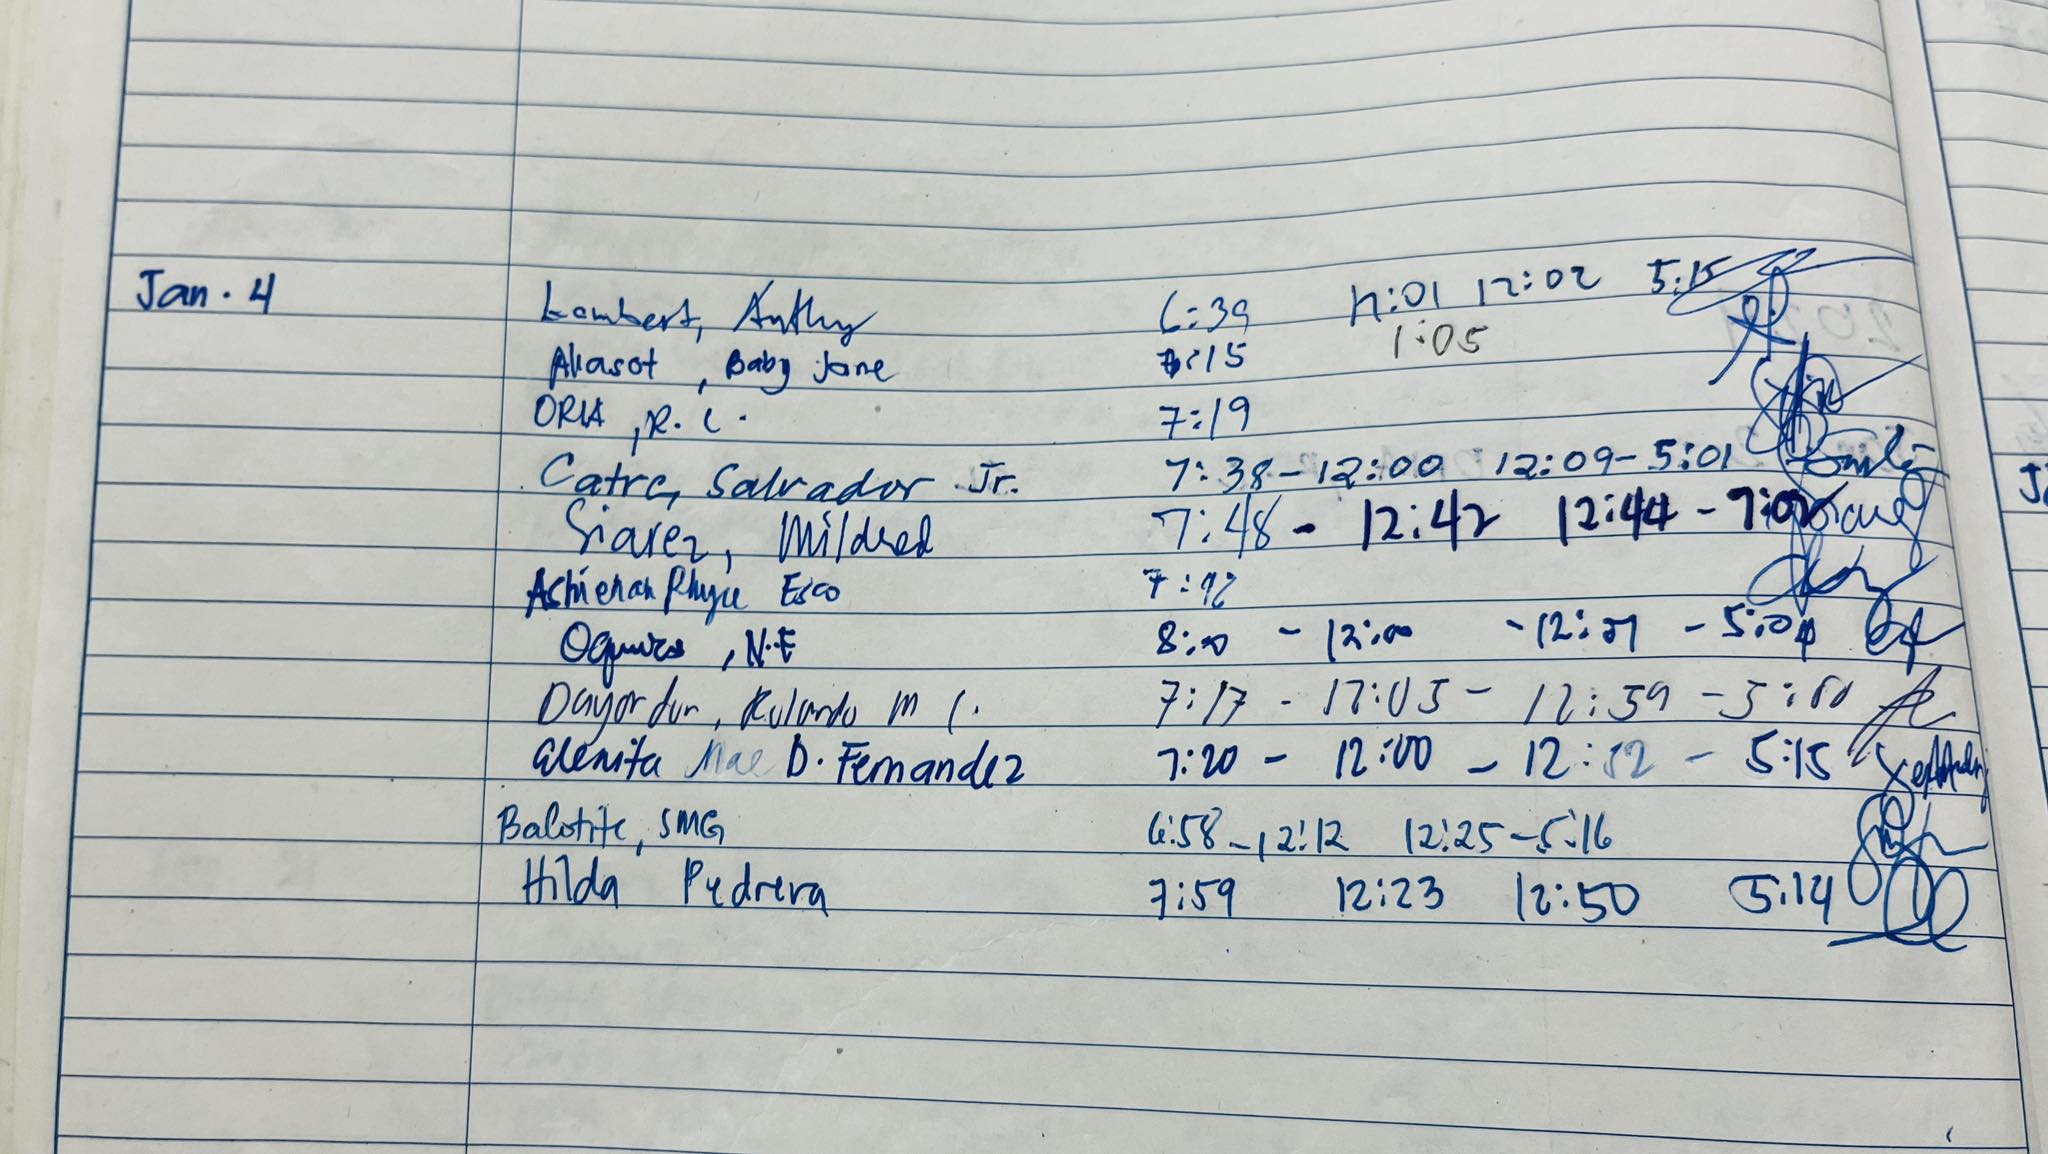 Jan. 4 Lambert, Anthy 6:39 12:01 12:02 5:15
Baby Jane 7:15 1:05
ORIA, R. C. 7:19
Catre, Salvador Jr. 7:38-12:00 12:09-5:01
Siarez, Mildred 7:48 - 12:42 12:44 - 7:02
Esco
, N.E 8:00 - 12:00 - 5:04
Dayordon, Rolando M C. 7:17 - 12:05 - 12:59 - 5:00
Glenita Mae D. Fernandez 7:20 - 12:00 - 12:52 - 5:15
Balotite, SMG 6:58-12:12 12:25-5:16
Hilda Pedrera 7:59 12:23 12:50 5:14